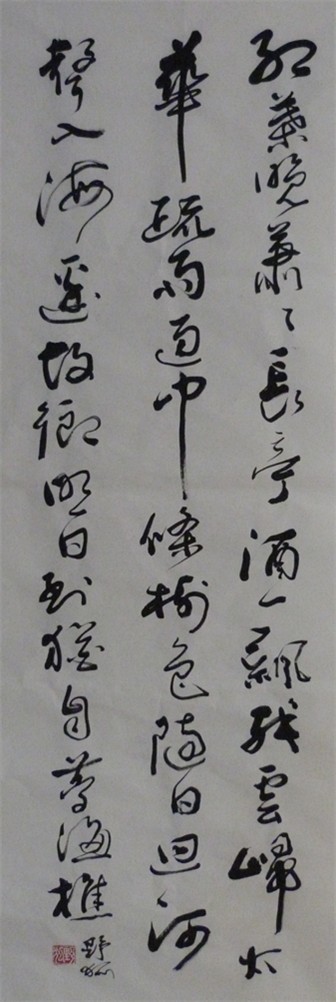 紅葉晚蕭々長亭酒一瓢殘雲歸太
華疏雨過中條樹色隨日迥河
聲入海遙故鄉明日到猶自夢漁樵
野